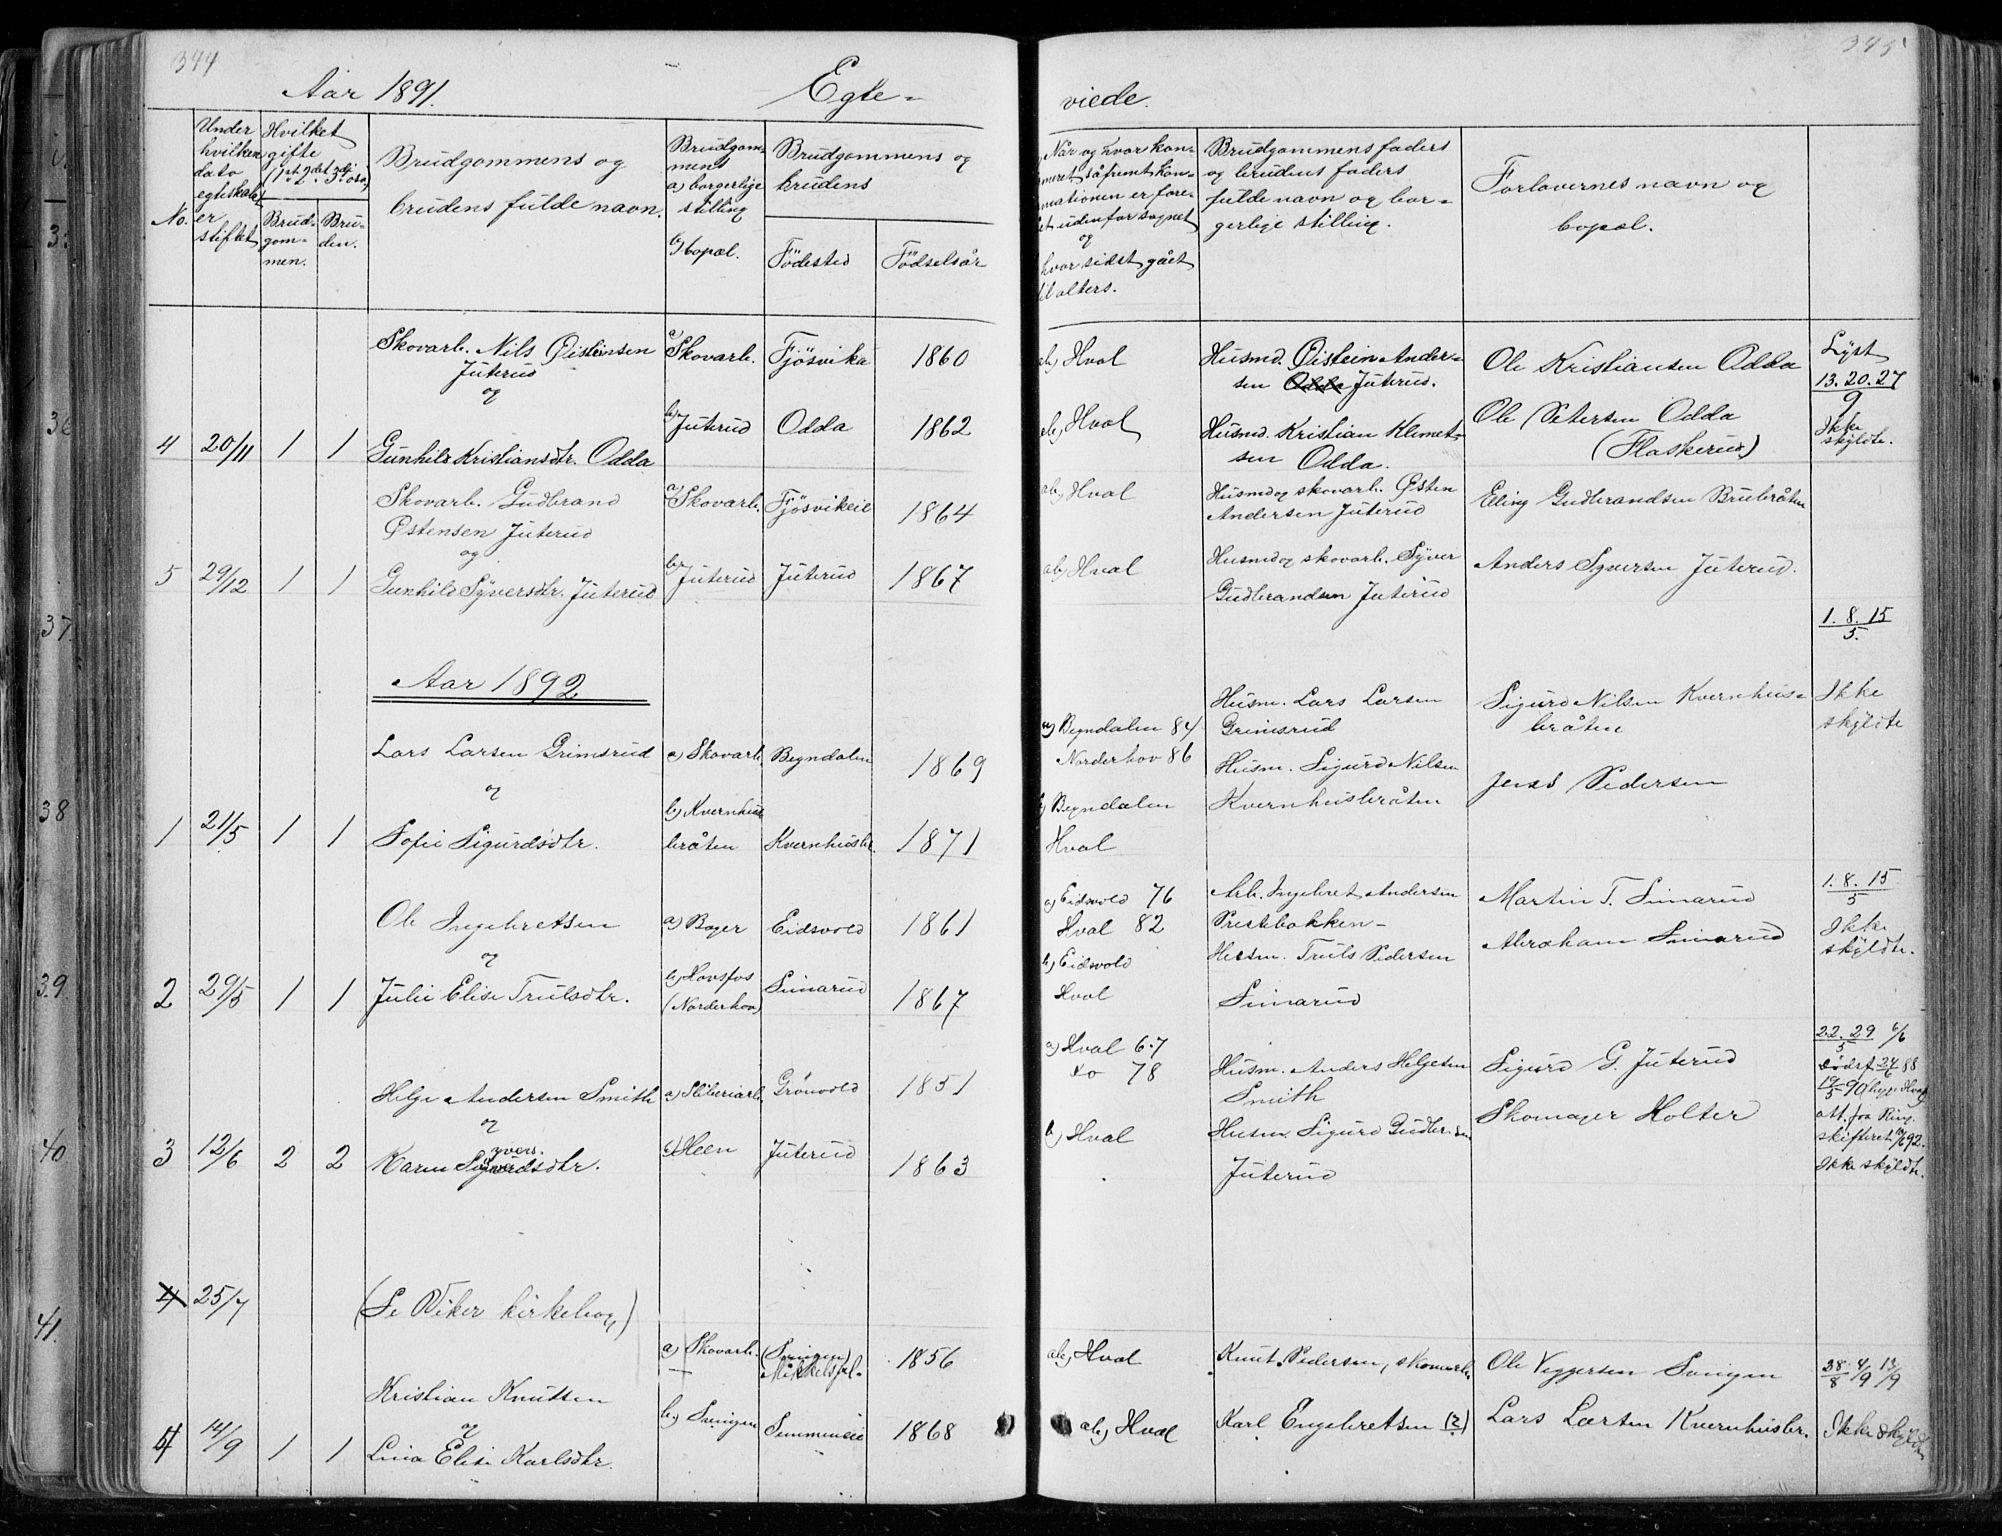 344
345
Aar 1891.
Egte-
viede.
No.
Under hvilken dato egteskabet er stiftet
Hvilket gifte (1st, 2det, 3dje osv.)
Brudgommen.
Bruden.
Brudgommens og
brudens fulde navn.
Brudgommens
a) borgerlige stilling
b) bopæl.
Brudgommens og
brudens
Födested
Födselsår
Når og hvor kon-
hvor sidst gået
til alters.
Brudgommens faders
og brudens faders
fulde navn og bor-
gerlige stilling.
Forlovernes navn og
bopæl.
4 20/11 1 1
Skovarb. Nils Øisteinsen
Juterud
og
Gunhild Kristiansdtr. Odda
a) Skovarb.
b) Juterud
Fjösvika 1860
Odda 1862
ab) Hval
ab) Hval
Husmd. Øistein Ander-
sen Odda Juterud.
Husmd. Kristian Klemet-
sen Odda.
Ole Kristiansen Odda
Ole Petersen Odda
(Flaskerud)
Lyst
13. 20. 27
9
Ikke
skyldte.
5 29/12 1 1
Skovarb. Gudbrand
Østensen Juterud
og
Gunhild Syversdtr. Juterud
a) Skovarb.
b) Juterud
Fjösvikeie 1864
Juterud 1867
ab) Hval
ab) Hval
Husmd og skovarb. Østen
Andersen Juterud
Husmd og skovarb. Syver
Gudbrandsen Juterud
Elling Gudbrandsen Brubråten
Anders Syversen Juterud.
Aar 1892
1 21/5 1 1
Lars Larsen Grimsrud
og
Sofie Sigurdsdtr.
a) Skovarb.
b) Kvernhus
bråten
Begndalen 1869
Kvernhusbr. 1871
a) Begndalen 84
Norderhov 86
b) Begndalen
Hval
Husm. Lars Larsen
Grimsrud
Husm. Sigurd Nilsen
Kvernhusbråten
Sigurd Nilsen Kvernhus-
bråten
Jens Pedersen
1. 8. 15
5.
Ikke
skyldte
2 29/5 1 1
Ole Ingebretsen
og
Julie Elise Trulsdtr.
a) Bager
b) Hovsfos
(Norderhov)
Eidsvold 1861
Simarud 1867
a) Eidsvold 76
Hval 82
b) Eidsvold
Hval
Arb. Ingebret Andersen
Prestebakken-
Husm. Truls Pedersen
Simarud
Martin T. Simarud
Abraham Simarud
1. 8. 15
5
Ikke
skyldte.
3 12/6 2 2
Helge Andersen Smith
og
Karen Syversdtr.
a) Sliberiarb.
b) Heen
Grönvold 1851
Juterud 1863
a) Hval 67
do 78
b) Hval
Husm. Anders Helgesen
Smith
Husm. Sigurd Gudbr.sen
Juterud
Sigurd G. Juterud
Skomager Holter
22. 29 6/6
5
att. fra Ring.
skifteret
Ikke skyldte.
4 25/7
(Se Viker kirkebog)
4 14/9 1 1
Kristian Knutsen
og
Lina Elise Karlsdtr.
a) Skovarb.
b) Svingen
(Svingen)
1856
Semmeneie 1868
ab) Hval
ab) Hval
Knut Pedersen, skovarb.
Karl Engebretsen (?)
Ole Viggersen Svingen
Lars Larsen Kvernhusbr.
28/8 4/9 11/9
Ikke skyldte
36
37.
38
39.
40.
41.